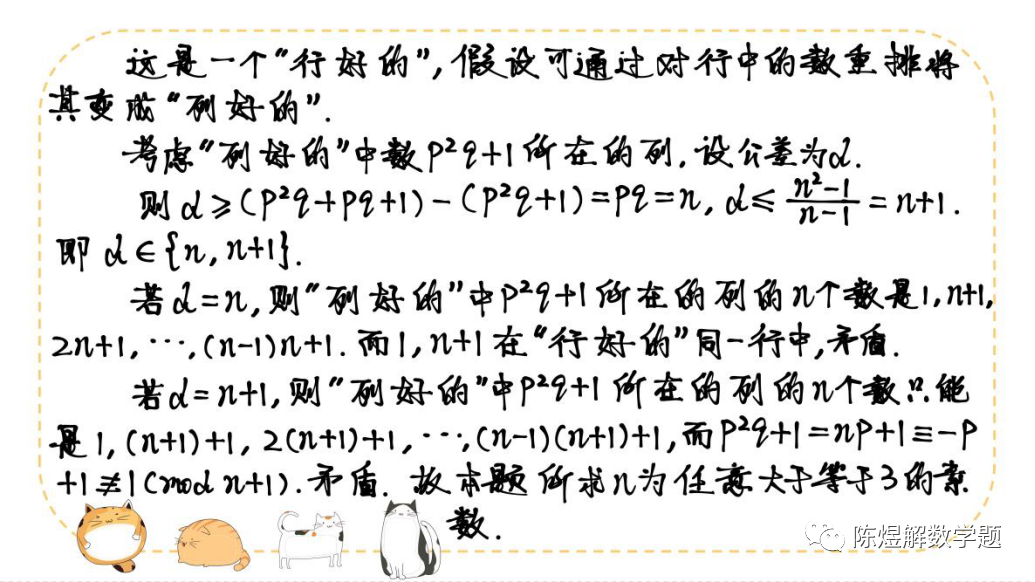 这是一个“行好的”,假设可通过对行中的数重排将
其变成“列好的”.
考虑“列好的”中数p²q+1所在的列,设公差为d.
则d≥(p²q+pq+1)-(p²q+1)=pq=n, d≤\frac{n²-1}{n-1}=n+1.
即 d∈{n,n+1}.
若d=n,则“列好的”中p²q+1所在的列的n个数是1,n+1,
2n+1,⋯,(n-1)n+1.而1,n+1在“行好的”同一行中,矛盾.
若d=n+1,则“列好的”中p²q+1所在的列的n个数只能
是1,(n+1)+1,2(n+1)+1,⋯,(n-1)(n+1)+1,而p²q+1=np+1≡-p
+1≢1(mod n+1).矛盾.故本题所求n为任意大于等于3的素
数.
陈煜解数学题